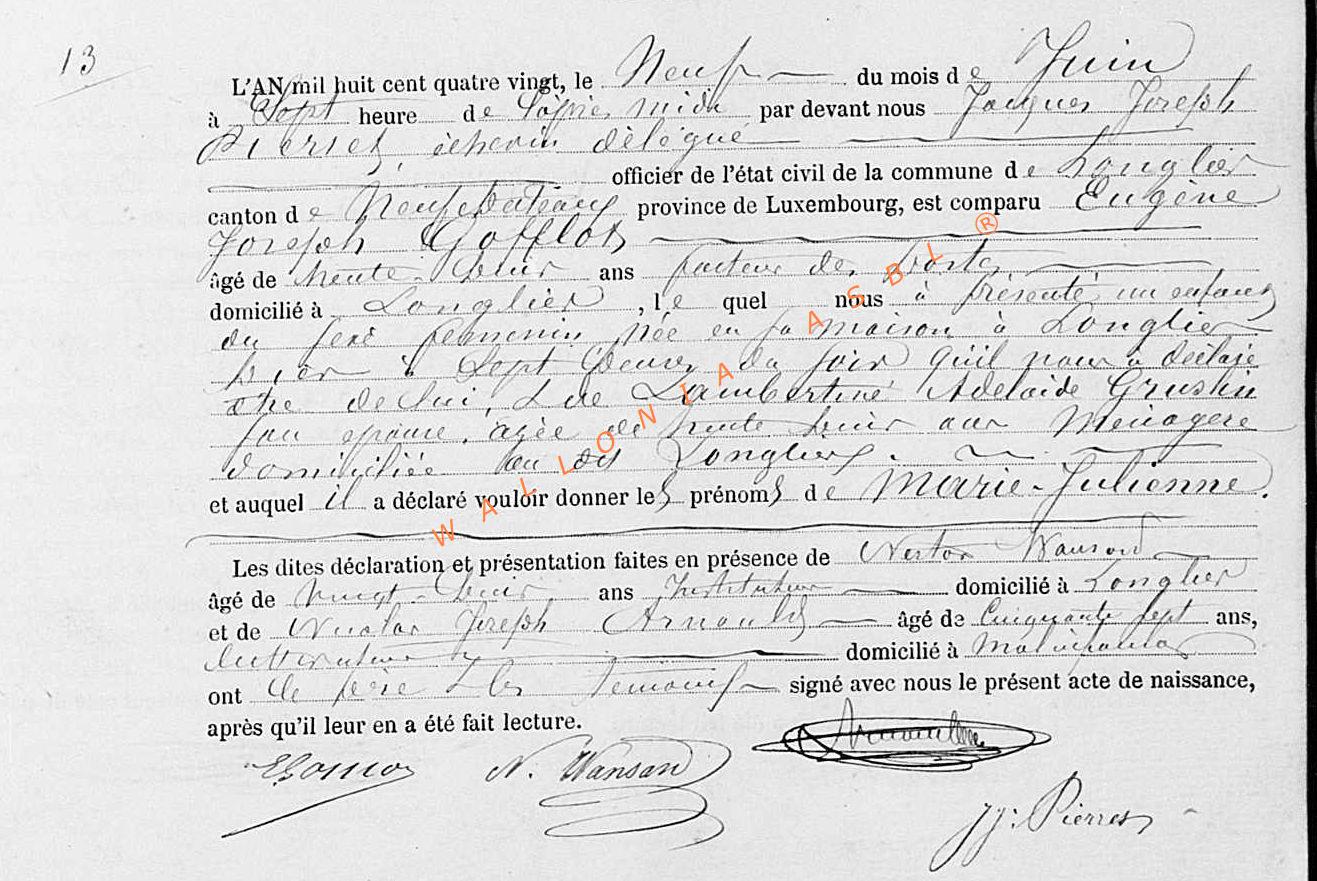 13
L'AN mil huit cent quatre vingt, le Neuf du mois de Juin
à Sept heure de l'après midi par devant nous Jacques Joseph
Pierret, échevin délégué
officier de l'état civil de la commune de Longlier
canton de Neufchâteau province de Luxembourg, est comparu Eugène
Joseph Gofflot
âgé de trente deux ans facteur des postes
domicilié à Longlier, le quel nous à présenté un enfant
du sexe féminin née en sa maison à Longlier
hier à Sept heures du soir qu'il nous a déclaré
être de lui, & de Lambertine Adelaïde Gruslin
son épouse, agée de trente deux ans Ménagere
domiciliée au dit Longlier.
et auquel il a déclaré vouloir donner les prénoms de Marie-Julienne.
Les dites déclaration et présentation faites en présence de Nestor Wansard
âgé de vingt-deux ans Instituteur domicilié à Longlier
et de Nicolas Joseph Arnould âgé de Cinquante sept ans,
Cultivateur domicilié à
ont le père & les temoins signé avec nous le présent acte de naissance,
après qu'il leur en a été fait lecture.
N. Wansard
JJ: Pierret
WALLONIA ASBL ®